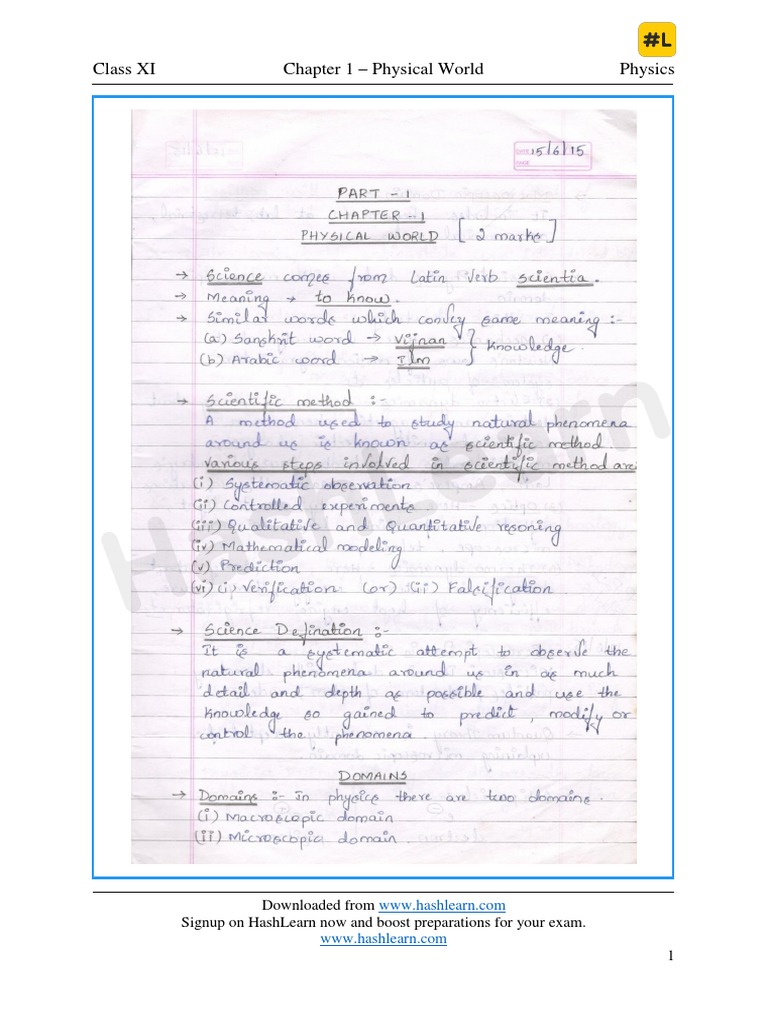 #L
Class XI Chapter 1 – Physical World Physics
DATE 15/6/15
PAGE
PART - 1
CHAPTER - 1
PHYSICAL WORLD [ 2 marks ]
→ Science comes from Latin Verb scientia.
→ Meaning → to know.
→ Similar words which convey same meaning :-
(a) Sanskrit word → Vijnan } Knowledge.
(b) Arabic word → Ilm
→ Scientific method :-
A method used to study natural phenomena
around us is known as scientific method
various steps involved in scientific method are
(i) Systematic observation
(ii) Controlled experiments
(iii) Qualitative and Quantitative resoning
(iv) Mathematical modeling
(v) Prediction
(vi) (i) Verification (or) (ii) Falsification
→ Science Defination :-
It is a systematic attempt to observe the
natural phenomena around us in as much
detail and depth as possible and use the
knowledge so gained to predict, modify or
control the phenomena.
DOMAINS
→ Domains :- In physics there are two domains.
(i) Macroscopic domain
(ii) Microscopic domain.
HashLearn
Downloaded from www.hashlearn.com
Signup on HashLearn now and boost preparations for your exam.
www.hashlearn.com
1